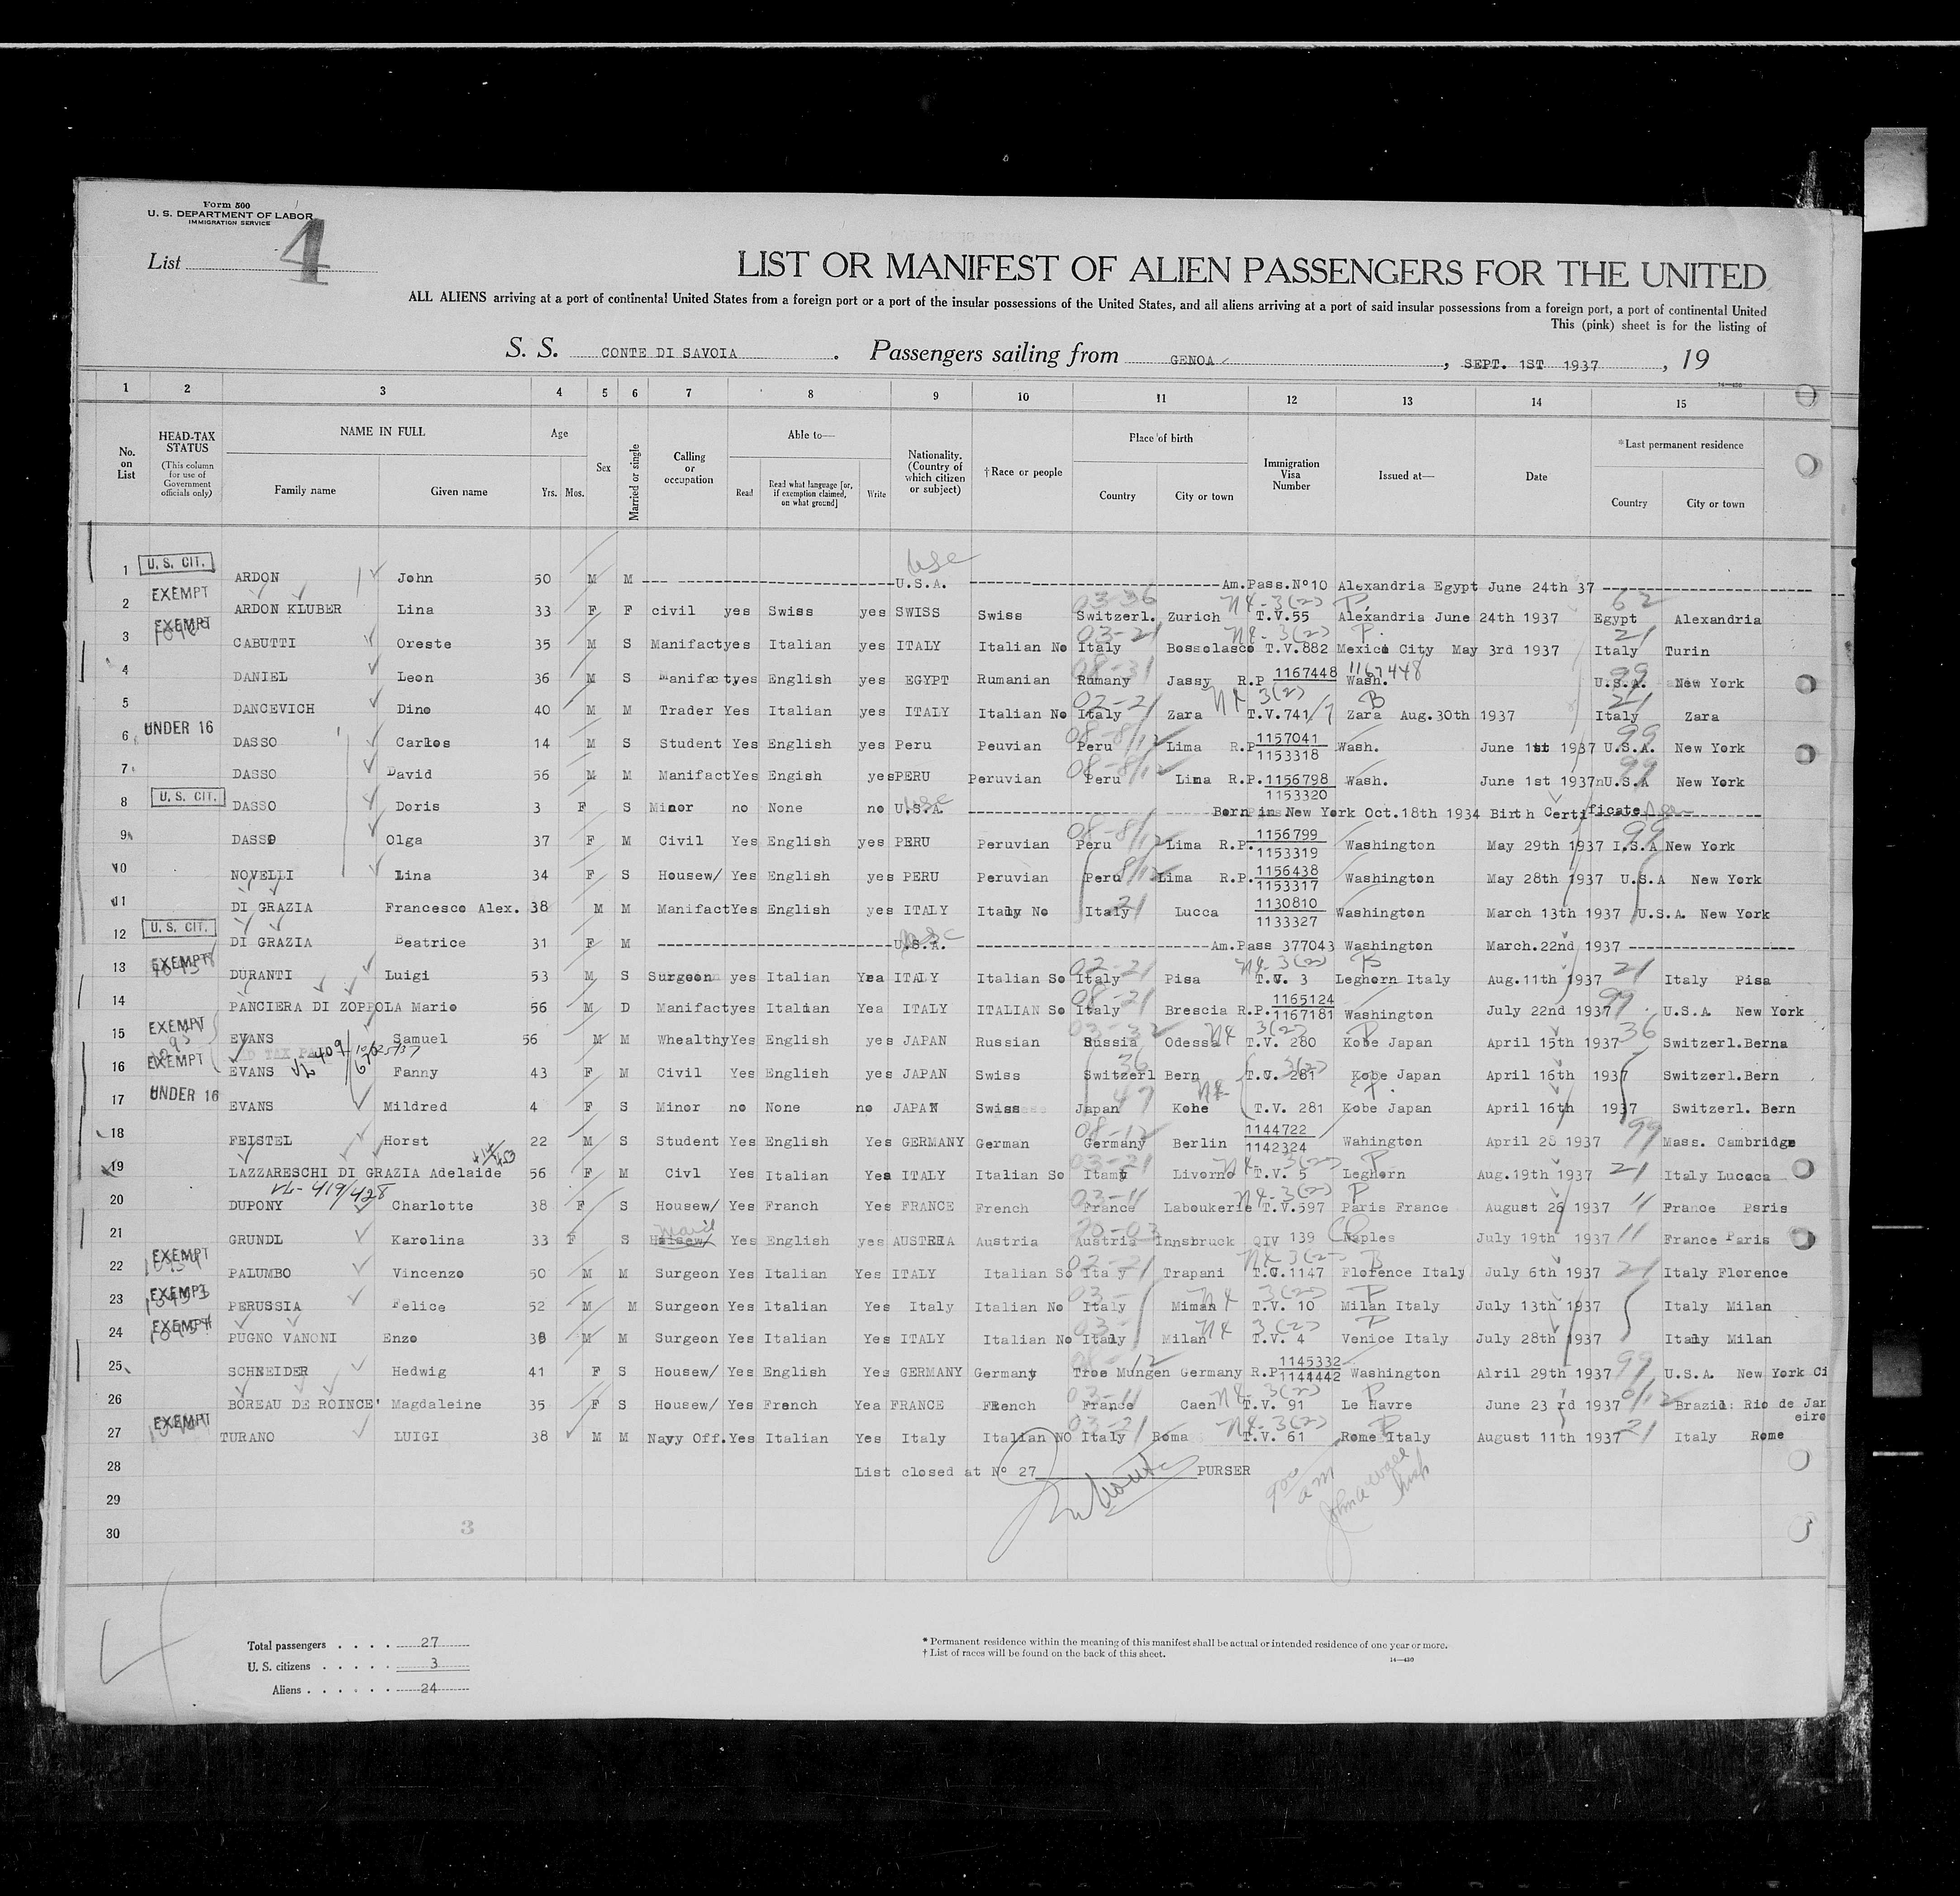 Form 500
U. S. DEPARTMENT OF LABOR
IMMIGRATION SERVICE
List 4
LIST OR MANIFEST OF ALIEN PASSENGERS FOR THE UNITED
ALL ALIENS arriving at a port of continental United States from a foreign port or a port of the insular possessions of the United States, and all aliens arriving at a port of said insular possessions from a foreign port, a port of continental United
This (pink) sheet is for the listing of
S. S. CONTE DI SAVOIA . Passengers sailing from GENOA , SEPT. 1ST 1937 , 19
14-430
1 2 3 4 5 6 7 8 9 10 11 12 13 14 15
No. on List
HEAD-TAX STATUS (This column for use of Government officials only)
NAME IN FULL
Family name Given name
Age
Yrs. Mos.
Sex
Married or single
Calling or occupation
Able to—
Read
Read what language [or, if exemption claimed, on what ground]
Write
Nationality. (Country of which citizen or subject)
† Race or people
Place of birth
Country City or town
Immigration Visa Number
Issued at—
Date
*Last permanent residence
Country City or town
1 U. S. CIT. ARDON John 50 M M U.S.A. usc Am.Pass.Nº10 Alexandria Egypt June 24th 37
2 EXEMPT ARDON KLUBER Lina 33 F F civil yes Swiss yes SWISS Swiss 03-36 Switzerl. Zurich T.V.55 3(2) P Alexandria June 24th 1937 62 Egypt Alexandria
3 EXEMPT CABUTTI Oreste 35 M S Manifact yes Italian yes ITALY Italian No 03-21 Italy Bossolasco T.V.882 3(2) P Mexico City May 3rd 1937 21 Italy Turin
4 DANIEL Leon 36 M S Manifact yes English yes EGYPT Rumanian 08-31 Rumany Jassy R.P 1167448 1167448 Wash. 99 U.S.A. New York
5 DANCEVICH Dino 40 M M Trader Yes Italian yes ITALY Italian No 02-21 Italy Zara T.V.741/7 3(2) B Zara Aug.30th 1937 21 Italy Zara
6 UNDER 16 DASSO Carlos 14 M S Student Yes English yes Peru Peuvian 08-8/12 Peru Lima R.P 1157041 1153318 Wash. June 1st 1937 99 U.S.A. New York
7 DASSO David 56 M M Manifact Yes Engish yes PERU Peruvian 08-8/12 Peru Lima R.P. 1156798 1153320 Wash. June 1st 1937 99 U.S.A New York
8 U. S. CIT. DASSO Doris 3 F S Minor no None no U.S.A. usc Born in New York Oct.18th 1934 Birth Certificate
9 DASSO Olga 37 F M Civil Yes English yes PERU Peruvian 08-8/12 Peru Lima R.P. 1156799 1153319 Washington May 29th 1937 99 I.S.A New York
10 NOVELLI Lina 34 F S Housew/ Yes English yes PERU Peruvian 8/12 Peru Lima R.P. 1156438 1153317 Washington May 28th 1937 U.S.A New York
11 DI GRAZIA Francesco Alex. 38 M M Manifact Yes English yes ITALY Italy No 21 Italy Lucca 1130810 1133327 Washington March 13th 1937 U.S.A. New York
12 U. S. CIT. DI GRAZIA Beatrice 31 F M U.S.A. usc Am.Pass 377043 Washington March.22nd 1937
13 EXEMPT DURANTI Luigi 53 M S Surgeon yes Italian Yea ITALY Italian So 02-21 Italy Pisa T.V. 3 3(2) B Leghorn Italy Aug.11th 1937 21 Italy Pisa
14 PANCIERA DI ZOPPOLA Mario 56 M D Manifact yes Italian Yea ITALY ITALIAN So 08-21 Italy Brescia R.P. 1165124 1167181 Washington July 22nd 1937 99 U.S.A. New York
15 EXEMPT EVANS Samuel 56 M M Whealthy Yes English yes JAPAN Russian 03-32 Russia Odessa T.V. 280 3(2) P Kobe Japan April 15th 1937 36 Switzerl.Berna
16 EXEMPT EVANS Fanny 43 F M Civil Yes English yes JAPAN Swiss 36 Switzerl Bern T.V. 281 3(2) Kobe Japan April 16th 1937 Switzerl.Bern
17 UNDER 16 EVANS Mildred 4 F S Minor no None no JAPAN Swiss 47 Japan Kohe T.V. 281 Kobe Japan April 16th 1937 Switzerl. Bern
18 FEISTEL Horst 22 M S Student Yes English Yes GERMANY German 08-12 Germany Berlin 1144722 1142324 Wahington April 28 1937 99 Mass. Cambridge
19 LAZZARESCHI DI GRAZIA Adelaide 56 F M Civl Yes Italian Yea ITALY Italian So 03-21 Itamy Livorno T.V. 5 3(2) P Leghorn Aug.19th 1937 21 Italy Lucaca
VL-419/428
20 DUPONY Charlotte 38 F S Housew/ Yes Franch Yes FRANCE French 03-11 France Laboukerie T.V.597 3(2) P Paris France August 26 1937 11 France Psris
21 GRUNDL Karolina 33 F S Housew/ maid Yes English yes AUSTRIA Austria 20-03 Austria Innsbruck QIV 139 Naples July 19th 1937 11 France Paris
22 EXEMPT PALUMBO Vincenzo 50 M M Surgeon Yes Italian Yes ITALY Italian So 02-21 Italy Trapani T.V.1147 3(2) B Florence Italy July 6th 1937 21 Italy Florence
23 EXEMPT PERUSSIA Felice 52 M M Surgeon Yes Italian Yes Italy Italian No 03- Italy Miman T.V. 10 3(2) P Milan Italy July 13th 1937 Italy Milan
24 EXEMPT PUGNO VANONI Enzo 38 M M Surgeon Yes Italian Yes ITALY Italian No 03- Italy Milan T.V. 4 3(2) P Venice Italy July 28th 1937 Italy Milan
25 SCHNEIDER Hedwig 41 F S Housew/ Yes English Yes GERMANY Germany 12 Tros Mungen Germany R.P 1145332 1144442 Washington Alril 29th 1937 99 U.S.A. New York Ci
26 BOREAU DE ROINCE' Magdaleine 35 F S Housew/ Yes French Yea FRANCE French 03-11 France Caen T.V. 91 3(2) P Le Havre June 23 rd 1937 Brazil: Rio de Jan
eiro
27 EXEMPT TURANO LUIGI 38 M M Navy Off. Yes Italian Yes Italy Italian NO 03-21 Italy Roma T.V. 61 3(2) P Rome Italy August 11th 1937 21 Italy Rome
28 List closed at Nº 27 PURSER
29
30
3
4
Total passengers . . . . 27
U. S. citizens . . . . . 3
Aliens . . . . . . 24
* Permanent residence within the meaning of this manifest shall be actual or intended residence of one year or more.
† List of races will be found on the back of this sheet.
14-430